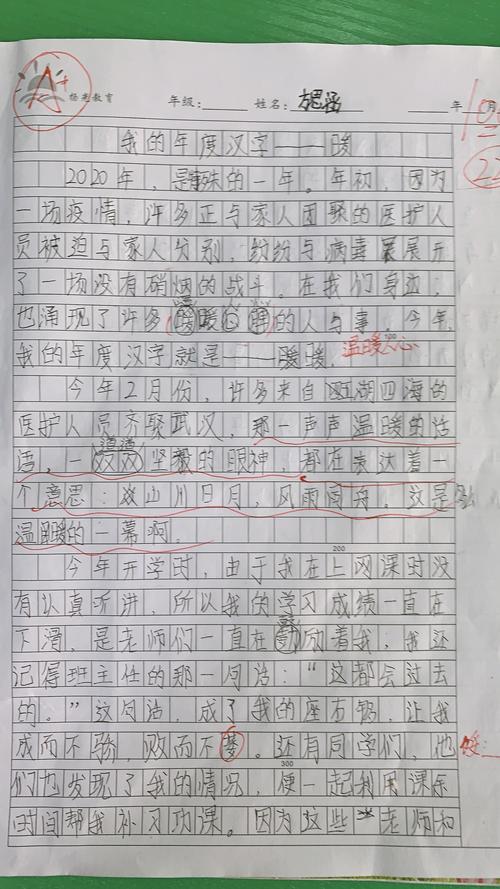 A+
杨老教育 年级: 姓名: 年 月
我的年度汉字——暖
2020年，是特殊的一年。年初，因为
一场疫情，许多正与家人团聚的医护人
员被迫与家人分别，纷纷与病毒展开
了一场没有硝烟的战斗。在我们身边，
也涌现了许多暖心的人与事。今年，
我的年度汉字就是——暖暖。 温暖人心
今年2月份，许多来自五湖四海的
医护人员齐聚武汉，那一声声温暖的话
语，一道道坚毅的眼神，都在表达着一
个意思：山川日月，风雨同舟。这是
温暖的一幕啊。
200
今年开学时，由于我在上网课时没
有认真听讲，所以我的学习成绩一直在
下滑，是老师们一直在鼓励着我，我还
记得班主任的那一句话：“这都会过去
的。”这句话，成了我的座右铭，让我
成而不骄，败而不馁。还有同学们，他
300
们也发现了我的情况，便一起利用课余
时间帮我补习功课。因为这些老师和